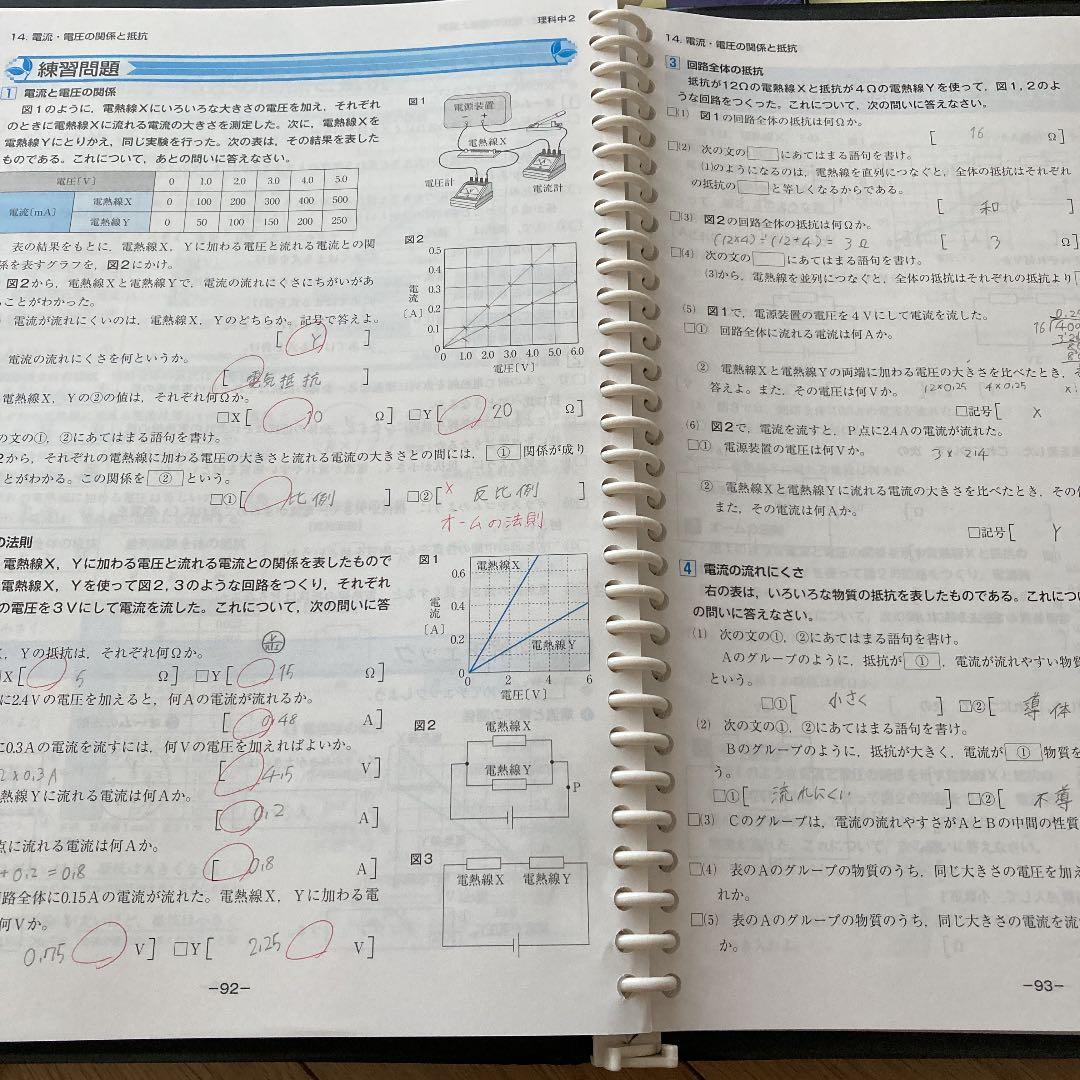 14. 電流・電圧の関係と抵抗
理科中2
練習問題
1 電流と電圧の関係
図1のように,電熱線Xにいろいろな大きさの電圧を加え,それぞれ
のときに電熱線Xに流れる電流の大きさを測定した。次に,電熱線Xを
電熱線Yにとりかえ,同じ実験を行った。次の表は,その結果を表した
ものである。これについて,あとの問いに答えなさい。
図1
電源装置
電熱線X
電圧計
電流計
電圧〔V〕 0 1.0 2.0 3.0 4.0 5.0
電流〔mA〕 電熱線X 0 100 200 300 400 500
電熱線Y 0 50 100 150 200 250
表の結果をもとに,電熱線X,Yに加わる電圧と流れる電流との関
係を表すグラフを,図2にかけ。
図2から,電熱線Xと電熱線Yで,電流の流れにくさにちがいがあ
ることがわかった。
電流が流れにくいのは,電熱線X,Yのどちらか。記号で答えよ。
[ Y ]
電流の流れにくさを何というか。
[ 電気抵抗 ]
電熱線X,Yの②の値は,それぞれ何Ωか。
□X[ 10 Ω] □Y[ 20 Ω]
図2
電流〔A〕
0.5
0.4
0.3
0.2
0.1
0
0 1.0 2.0 3.0 4.0 5.0 6.0
電圧〔V〕
の文の①,②にあてはまる語句を書け。
2から,それぞれの電熱線に加わる電圧の大きさと流れる電流の大きさとの間には,①関係が成り
ことがわかる。この関係を②という。
□①[ 比例 ] □②[ × 反比例 ]
オームの法則
の法則
電熱線X,Yに加わる電圧と流れる電流との関係を表したもので
電熱線X,Yを使って図2,3のような回路をつくり,それぞれ
の電圧を3Vにして電流を流した。これについて,次の問いに答
X,Yの抵抗は,それぞれ何Ωか。
□X[ 5 Ω] □Y[ 15 Ω]
に2.4Vの電圧を加えると,何Aの電流が流れるか。
[ 0.48 A]
に0.3Aの電流を流すには,何Vの電圧を加えればよいか。
[ 4.5 V]
電熱線Yに流れる電流は何Aか。
[ 0.2 A]
点に流れる電流は何Aか。
+0.2=0.8 [ 0.8 A]
回路全体に0.15Aの電流が流れた。電熱線X,Yに加わる電
何Vか。
0.75 V] □Y[ 2.25 V]
図1
電流〔A〕
電熱線X
電熱線Y
0.6
0.4
0.2
0
0 2 4 6
電圧〔V〕
図2
電熱線X
電熱線Y
P
図3
電熱線X 電熱線Y
-92-
14. 電流・電圧の関係と抵抗
3 回路全体の抵抗
抵抗が12Ωの電熱線Xと抵抗が4Ωの電熱線Yを使って,図1,2のよ
うな回路をつくった。これについて,次の問いに答えなさい。
□(1) 図1の回路全体の抵抗は何Ωか。
[ 16 Ω]
□(2) 次の文の□にあてはまる語句を書け。
(1)のようになるのは,電熱線を直列につなぐと,全体の抵抗はそれぞれ
の抵抗の□と等しくなるからである。
[ 和 ]
□(3) 図2の回路全体の抵抗は何Ωか。
(12×4)÷(12+4)=3Ω [ 3 Ω]
□(4) 次の文の□にあてはまる語句を書け。
(3)から,電熱線を並列につなぐと,全体の抵抗はそれぞれの抵抗より
(5) 図1で,電源装置の電圧を4Vにして電流を流した。
□① 回路全体に流れる電流は何Aか。
② 電熱線Xと電熱線Yの両端に加わる電圧の大きさを比べたとき,そ
答えよ。また,その電圧は何Vか。 12×0.25 4×0.25
□記号[ X
(6) 図2で,電流を流すと,P点に2.4Aの電流が流れた。
□① 電源装置の電圧は何Vか。 3×2.4
② 電熱線Xと電熱線Yに流れる電流の大きさを比べたとき,その
また,その電流は何Aか。
□記号[ Y
4 電流の流れにくさ
右の表は,いろいろな物質の抵抗を表したものである。これについ
の問いに答えなさい。
(1) 次の文の①,②にあてはまる語句を書け。
Aのグループのように,抵抗が①,電流が流れやすい物質
という。
□①[ 小さく ] □②[ 導体
(2) 次の文の①,②にあてはまる語句を書け。
Bのグループのように,抵抗が大きく,電流が①物質を
う。
□①[ 流れにくい ] □②[ 不導
□(3) Cのグループは,電流の流れやすさがAとBの中間の性質
□(4) 表のAのグループの物質のうち,同じ大きさの電圧を加え
れか。
□(5) 表のAのグループの物質のうち,同じ大きさの電流を流
か。
-93-